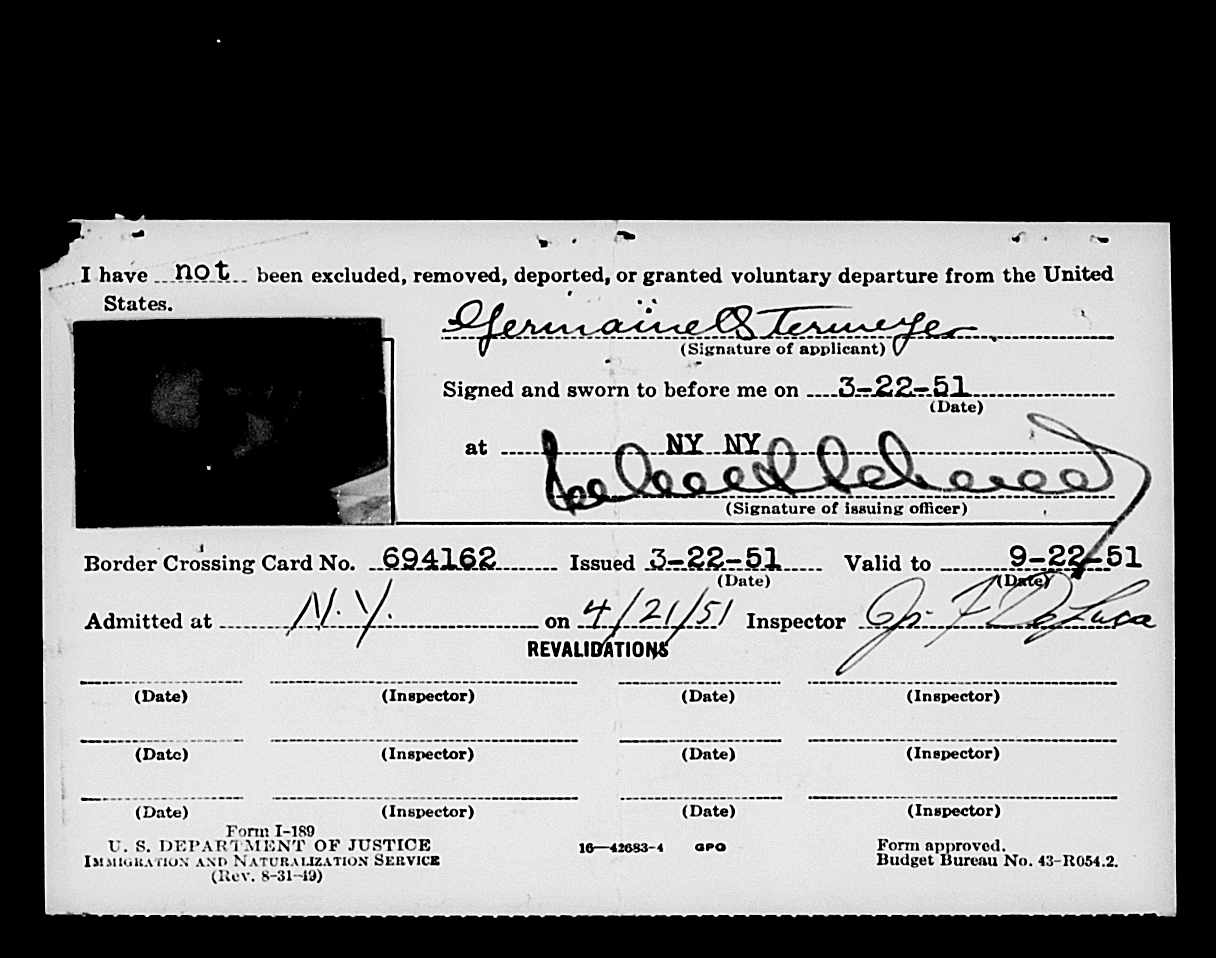 I have not been excluded, removed, deported, or granted voluntary departure from the United
States.
Germaine B Termeyer
(Signature of applicant)
Signed and sworn to before me on 3-22-51
(Date)
at NY NY
(Signature of issuing officer)
Border Crossing Card No. 694162 Issued 3-22-51 Valid to 9-22-51
(Date) (Date)
Admitted at N.Y. on 4/21/51 Inspector F DeLuca
REVALIDATIONS
(Date) (Inspector) (Date) (Inspector)
(Date) (Inspector) (Date) (Inspector)
(Date) (Inspector) (Date) (Inspector)
Form I-189
U. S. DEPARTMENT OF JUSTICE 16—42683-4 GPO Form approved.
IMMIGRATION AND NATURALIZATION SERVICE Budget Bureau No. 43-R054.2.
(Rev. 8-31-49)